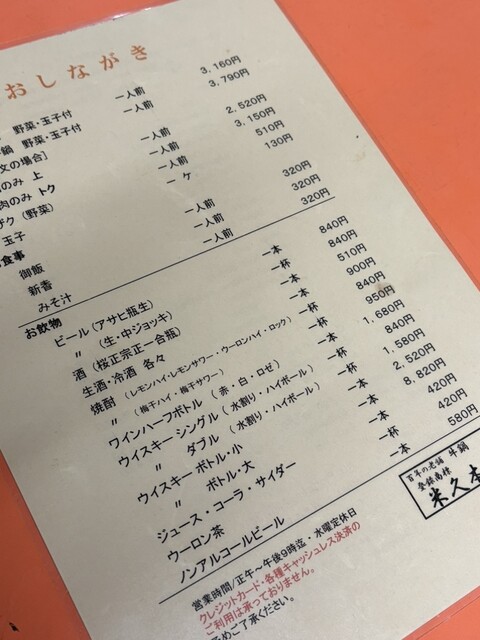 おしながき
野菜・玉子付 一人前 3,160円
鍋 野菜・玉子付 一人前 3,790円
文の場合]
のみ 上 一人前 2,520円
肉のみ トク 一人前 3,150円
ザク(野菜) 一人前 510円
玉子 一ケ 130円
食事
御飯 一人前 320円
新香 一人前 320円
みそ汁 一人前 320円
お飲物
ビール(アサヒ瓶生) 一本 840円
〃 (生・中ジョッキ) 一杯 840円
酒(桜正宗正一合瓶) 一本 510円
生酒・冷酒 各々 一本 900円
焼酎 (レモンハイ・レモンサワー・ウーロンハイ・ロック) 一杯 840円
〃 (梅干ハイ・梅干サワー) 一杯 950円
ワインハーフボトル (赤・白・ロゼ) 一本 1,680円
ウイスキー シングル(水割り・ハイボール) 一杯 840円
〃 ダブル (水割り・ハイボール) 一杯 1,580円
ウイスキー ボトル・小 一本 2,520円
〃 ボトル・大 一本 8,820円
ジュース・コーラ・サイダー 一本 420円
ウーロン茶 一杯 420円
ノンアルコールビール 一本 580円
営業時間/正午～午後9時迄・水曜定休日
クレジットカード・各種キャッシュレス決済の
ご利用は承っておりません。
予めご了承ください。
百年の老舗 牛鍋
登録商標
米久本